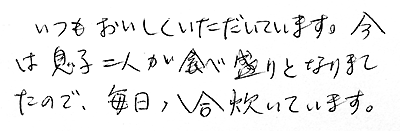 いつもおいしくいただいています。今
は息子二人が食べ盛りとなりまし
たので、毎日、八合炊いています。